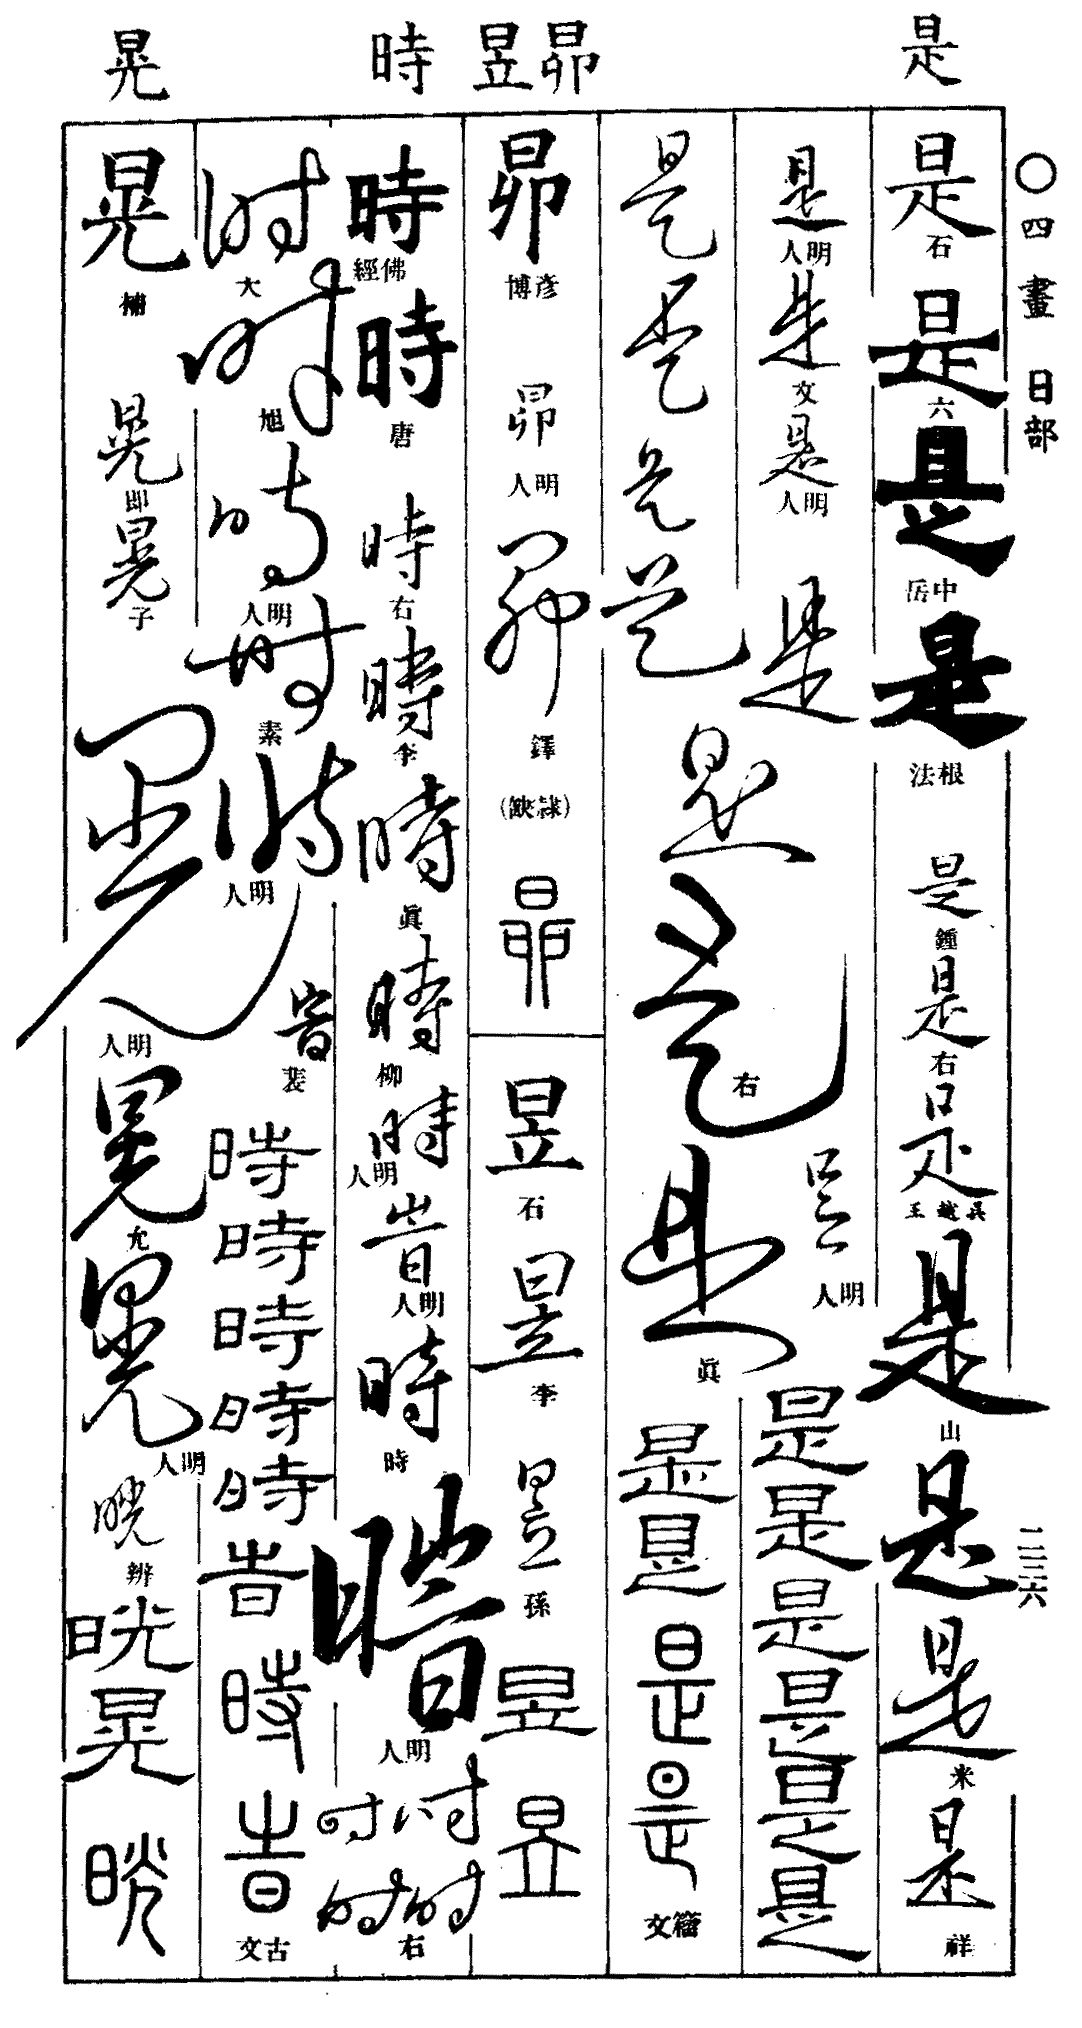 ○四畫 日部
二三六
是
昴
昱
時
晃
是
石
是
六
是
是
中岳
是
根法
是
鍾
是
右
是
吳越王
是
山
是
是
米
是
祥
是
明人
是
文
是
明人
是
是
明人
是
是
是
是
是
是
是
是
是
是
是
是
右
是
眞
是
是
是
是
籀文
昴
彥博
昴
明人
昴
鐸
(隷缺)
昴
昱
石
昱
李
昱
孫
昱
昱
時
佛經
時
唐
時
右
時
李
時
眞
時
柳
時
明人
旹
明人
時
時
明人
時
時
時
時
右
時
大
時
旭
時
明人
時
素
時
明人
裴
時
時
時
時
時
旹
時
旹
古文
晃
補
晃
即
晃
子
晃
明人
晃
允
晃
明人
晄
辨
晄
晃
晄